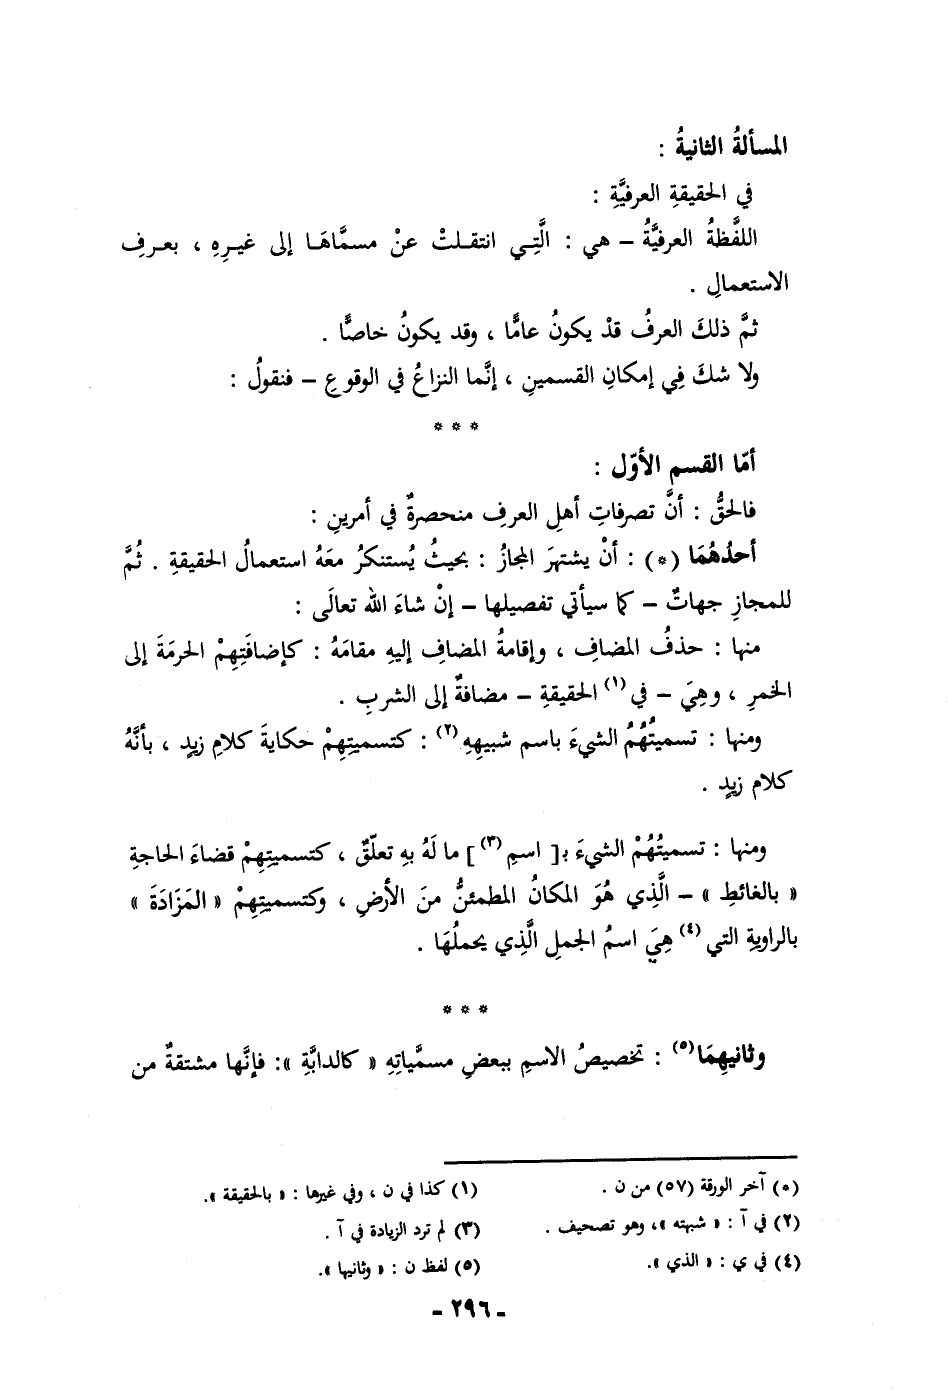 المسألةُ الثانيةُ :
في الحقيقةِ العرفيَّةِ :
اللفَّظةُ العرفيَّةُ – هي : الَّتِي انتقلتْ عنْ مسمَّاهَا إلى غيرِهِ ، بعرفِ
الاستعمالِ .
ثمَّ ذلكَ العرفُ قدْ يكونُ عامًّا ، وقد يكونُ خاصًّا .
ولا شكَ فِي إمكانِ القسمينِ ، إنَّما النزاعُ في الوقوعِ – فنقولُ :
* * *
أمّا القسم الأوّل :
فالحقُّ : أنَّ تصرفاتِ أهلِ العرفِ منحصرةٌ في أمرينِ :
أحدُهُمَا (*) : أنْ يشتهرَ المجازُ : بحيثُ يُستنكرُ معَهُ استعمالُ الحقيقةِ . ثُمَّ
للمجازِ جهاتٌ – كما سيأتي تفصيلها – إنْ شاءَ الله تعالَى :
منها : حذفُ المضافِ ، وإقامةُ المضافِ إليهِ مقامَهُ : كإضافَتِهِمْ الحرمَةَ إلى
الخمرِ ، وهِيَ – في (١) الحقيقةِ – مضافةٌ إلى الشربِ .
ومنها : تسميتُهُمُ الشيءَ باسم شبيهِهِ (٢) : كتسميتِهِمْ حكايةَ كلامِ زيدٍ ، بأنَّهُ
كلام زيدٍ .
ومنها : تسميتُهُمْ الشيءَ بـ[ اسمِ (٣) ] ما لَهُ بِهِ تعلّقٌ ، كتسميتِهِمْ قضاءَ الحاجةِ
« بالغائطِ » – الَّذِي هُوَ المكانُ المطمئنُّ منَ الأرضِ ، وكتسميتِهِمْ « المَزَادَةَ »
بالراويةِ التي (٤) هِيَ اسمُ الجملِ الَّذِي يحملُهَا .
* * *
وثانيهِمَا (٥) : تخصيصُ الاسمِ ببعضِ مسمَّياتِهِ « كالدابَّةِ »: فإنَّها مشتقةٌ من
(*) آخر الورقة (٥٧) من ن .
(١) كذا في ن ، وفي غيرها : « بالحقيقة ».
(٢) في آ : « شبهته »، وهو تصحيف .
(٣) لم ترد الزيادة في آ .
(٤) في ي : « الذي ».
(٥) لفظ ن : « وثانيها ».
- ٢٩٦ -